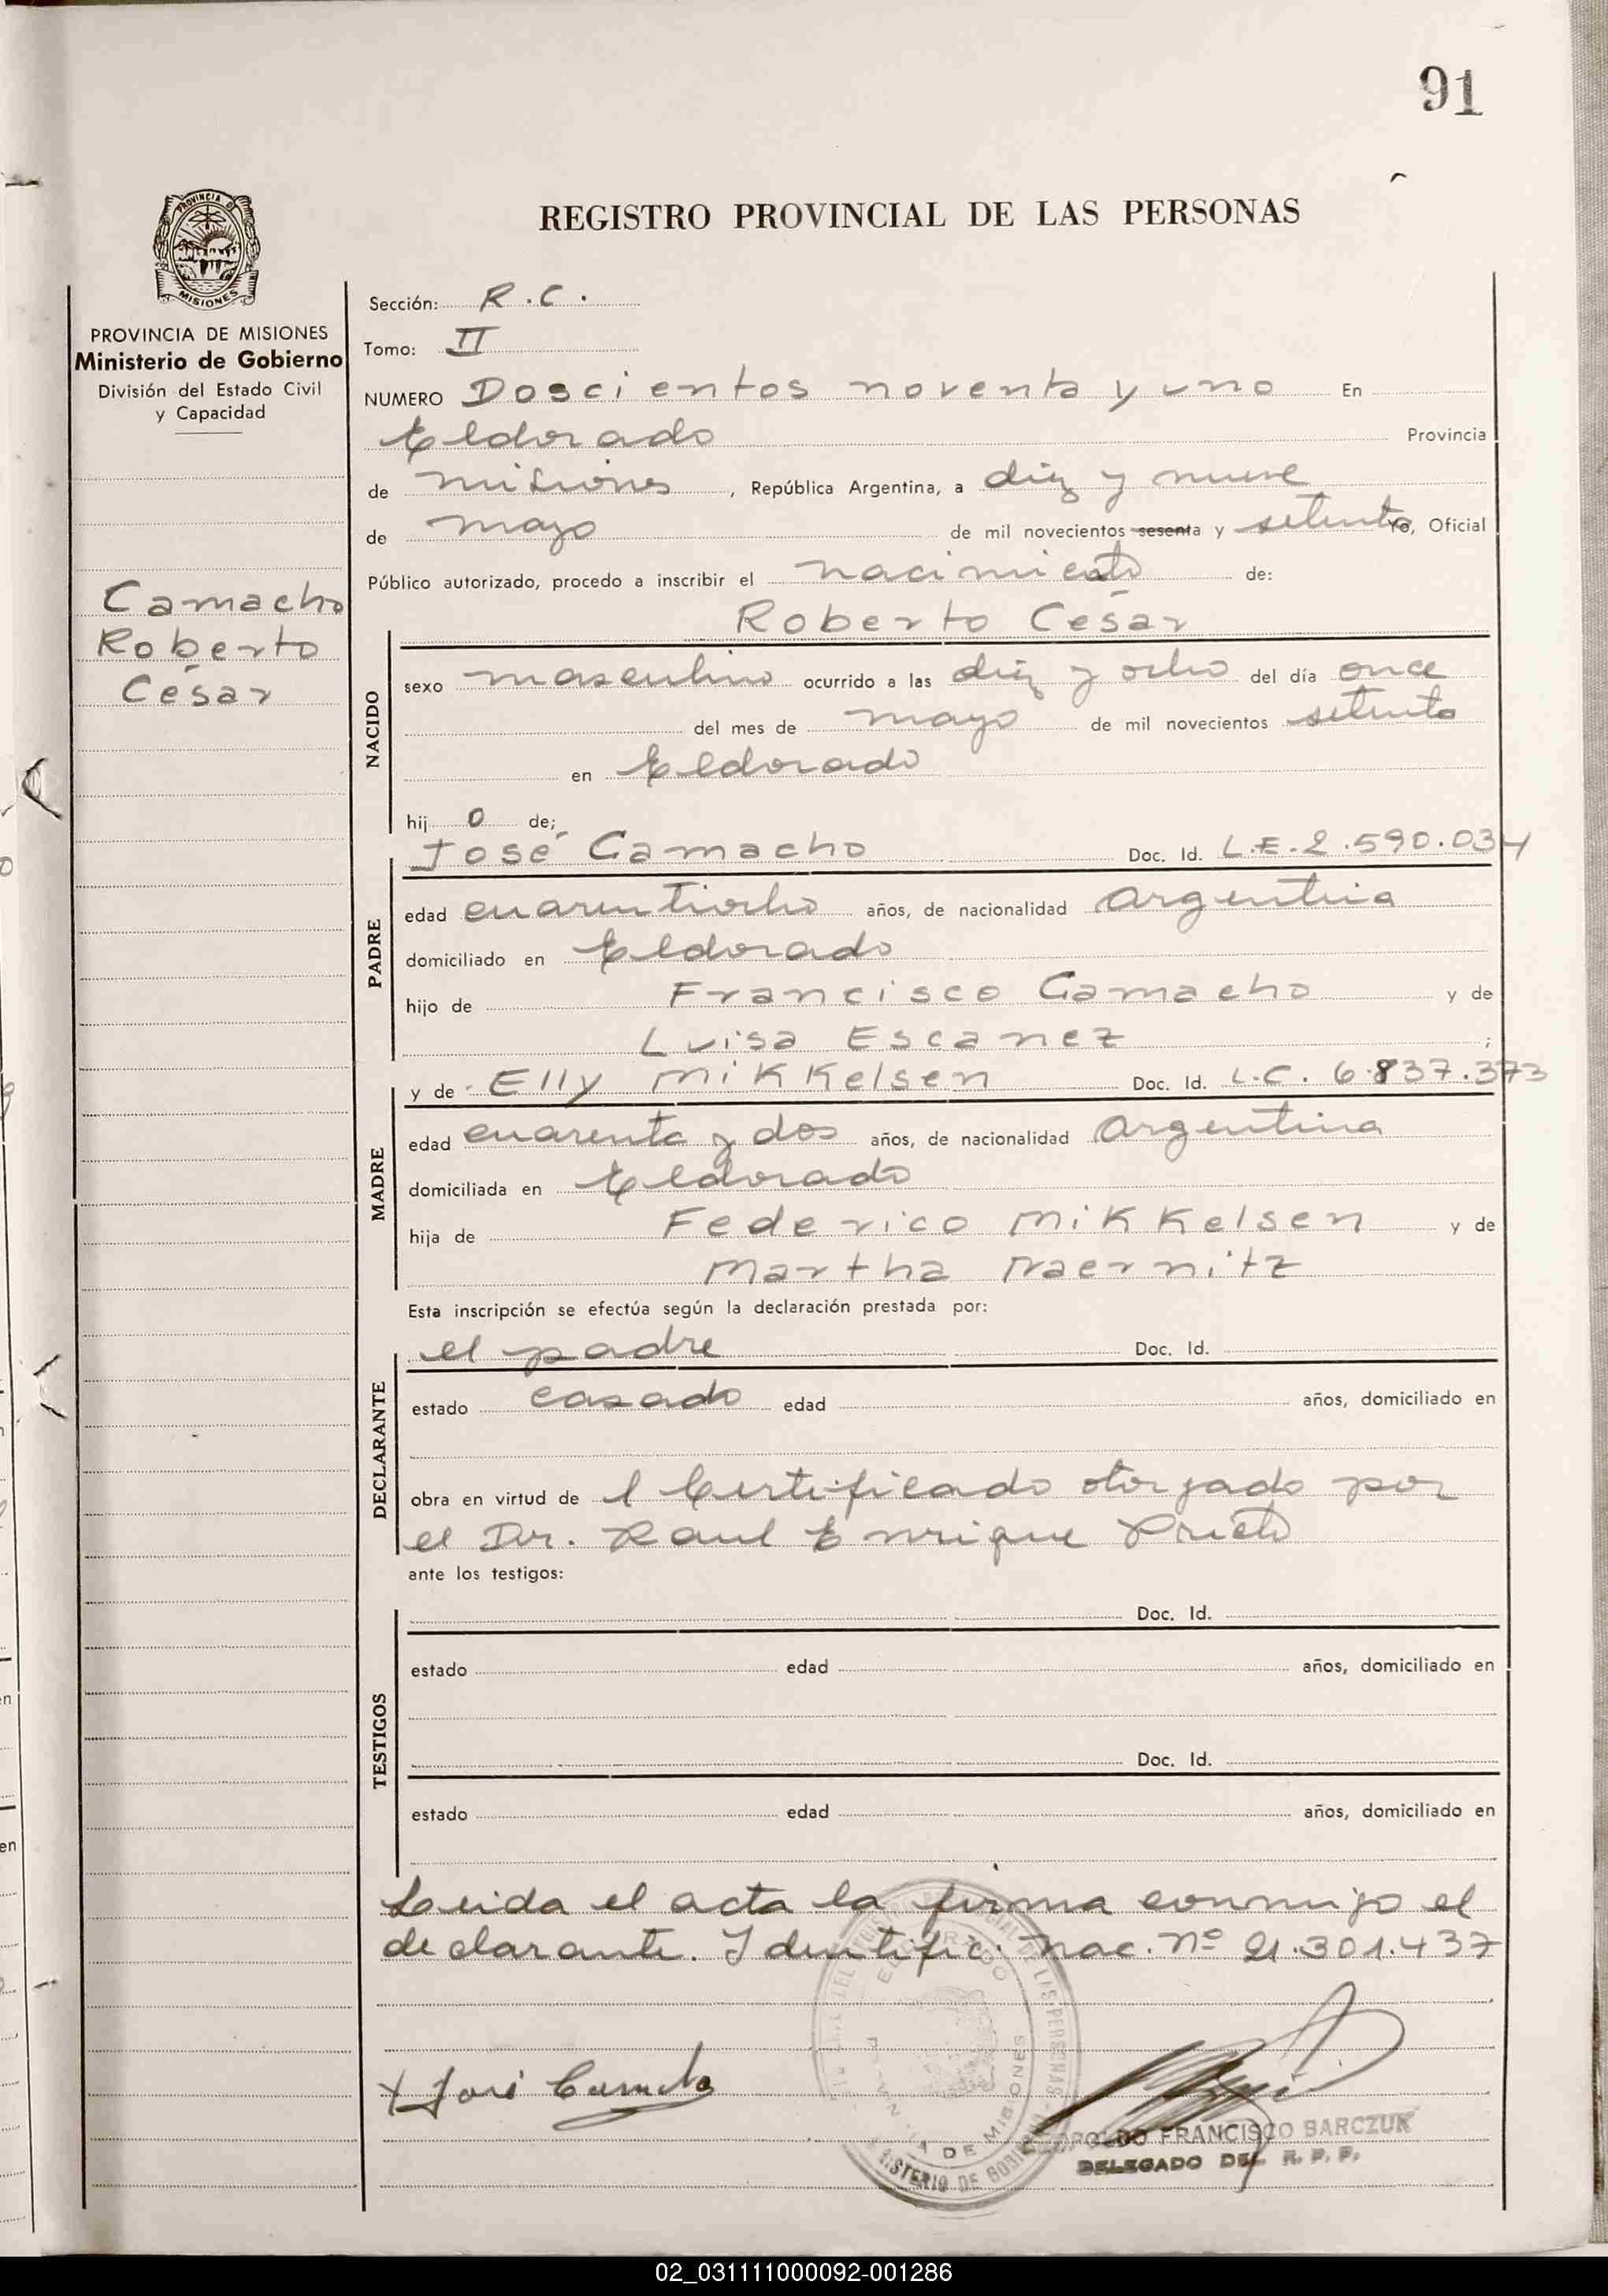 91
REGISTRO PROVINCIAL DE LAS PERSONAS
PROVINCIA DE MISIONES
Ministerio de Gobierno
División del Estado Civil
y Capacidad
Camacho
Roberto
César
Sección: R.C.
Tomo: II
NUMERO Doscientos noventa y uno En
Eldorado Provincia
de misiones, República Argentina, a diez y nueve
de mayo de mil novecientos sesenta y setenta Yo, Oficial
Público autorizado, procedo a inscribir el nacimiento de:
Roberto César
NACIDO
sexo masculino ocurrido a las diez y ocho del día once
del mes de mayo de mil novecientos setenta
en Eldorado
hijo de;
José Camacho Doc. Id. L.E. 2.590.034
PADRE
edad cuarentiocho años, de nacionalidad argentina
domiciliado en Eldorado
hijo de Francisco Camacho y de
Luisa Escanez ;
y de Elly Mikkelsen Doc. Id. L.C. 6.837.373
MADRE
edad cuarenta y dos años, de nacionalidad argentina
domiciliada en Eldorado
hija de Federico Mikkelsen y de
Martha Naernitz
Esta inscripción se efectúa según la declaración prestada por:
el padre Doc. Id.
DECLARANTE
estado casado edad años, domiciliado en
obra en virtud de l Certificado otorgado por
el Dr. Raul Enrique Prieto
ante los testigos:
Doc. Id.
TESTIGOS
estado edad años, domiciliado en
Doc. Id.
estado edad años, domiciliado en
Leida el acta la firma conmigo el
declarante. Identific. nac. nº 21.301.437
José Camacho
FRANCISCO BARCZUK
DELEGADO DEL R. P. P.
02_031111000092-001286